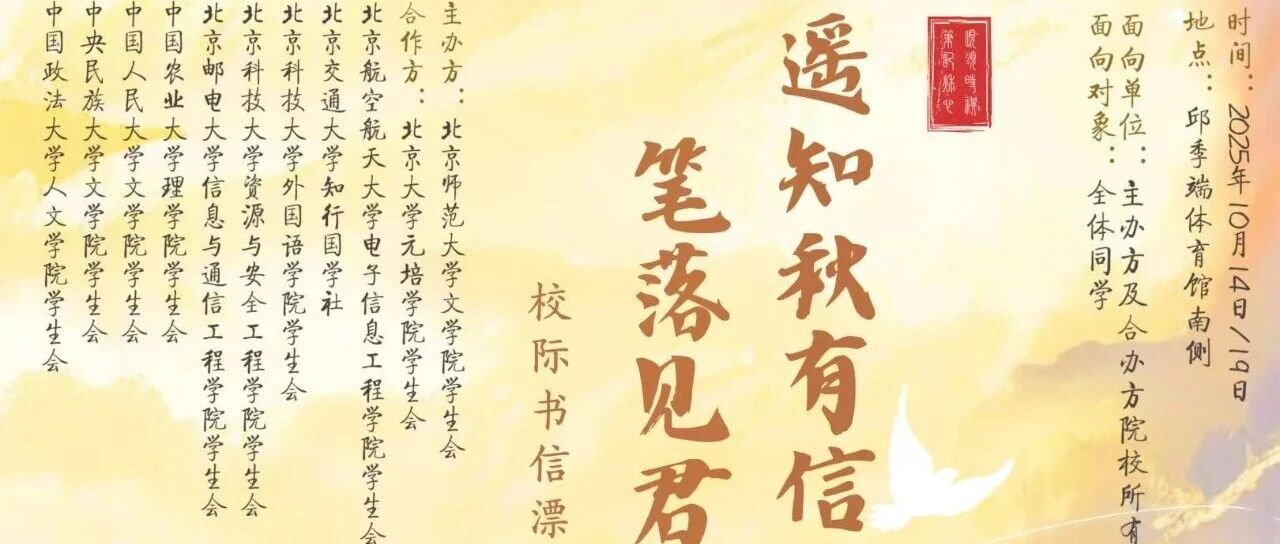 时间：2025年10月14日/19日
地点：邱季端体育馆南侧
面向单位：主办方及合办方院校所有
面向对象：全体同学
遥知秋有信
笔落见君
校际书信漂
主办方：北京师范大学文学院学生会
合作方：北京大学元培学院学生会
北京航空航天大学电子信息工程学院学生会
北京交通大学知行国学社
北京科技大学外国语学院学生会
北京科技大学资源与安全工程学院学生会
北京邮电大学信息与通信工程学院学生会
中国农业大学理学院学生会
中国人民大学文学院学生会
中央民族大学文学院学生会
中国政法大学人文学院学生会